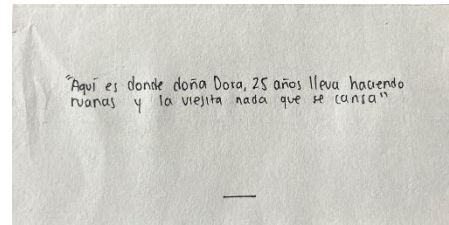 "Aquí es donde doña Dora, 25 años lleva haciendo
ruanas y la viejita nada que se cansa"